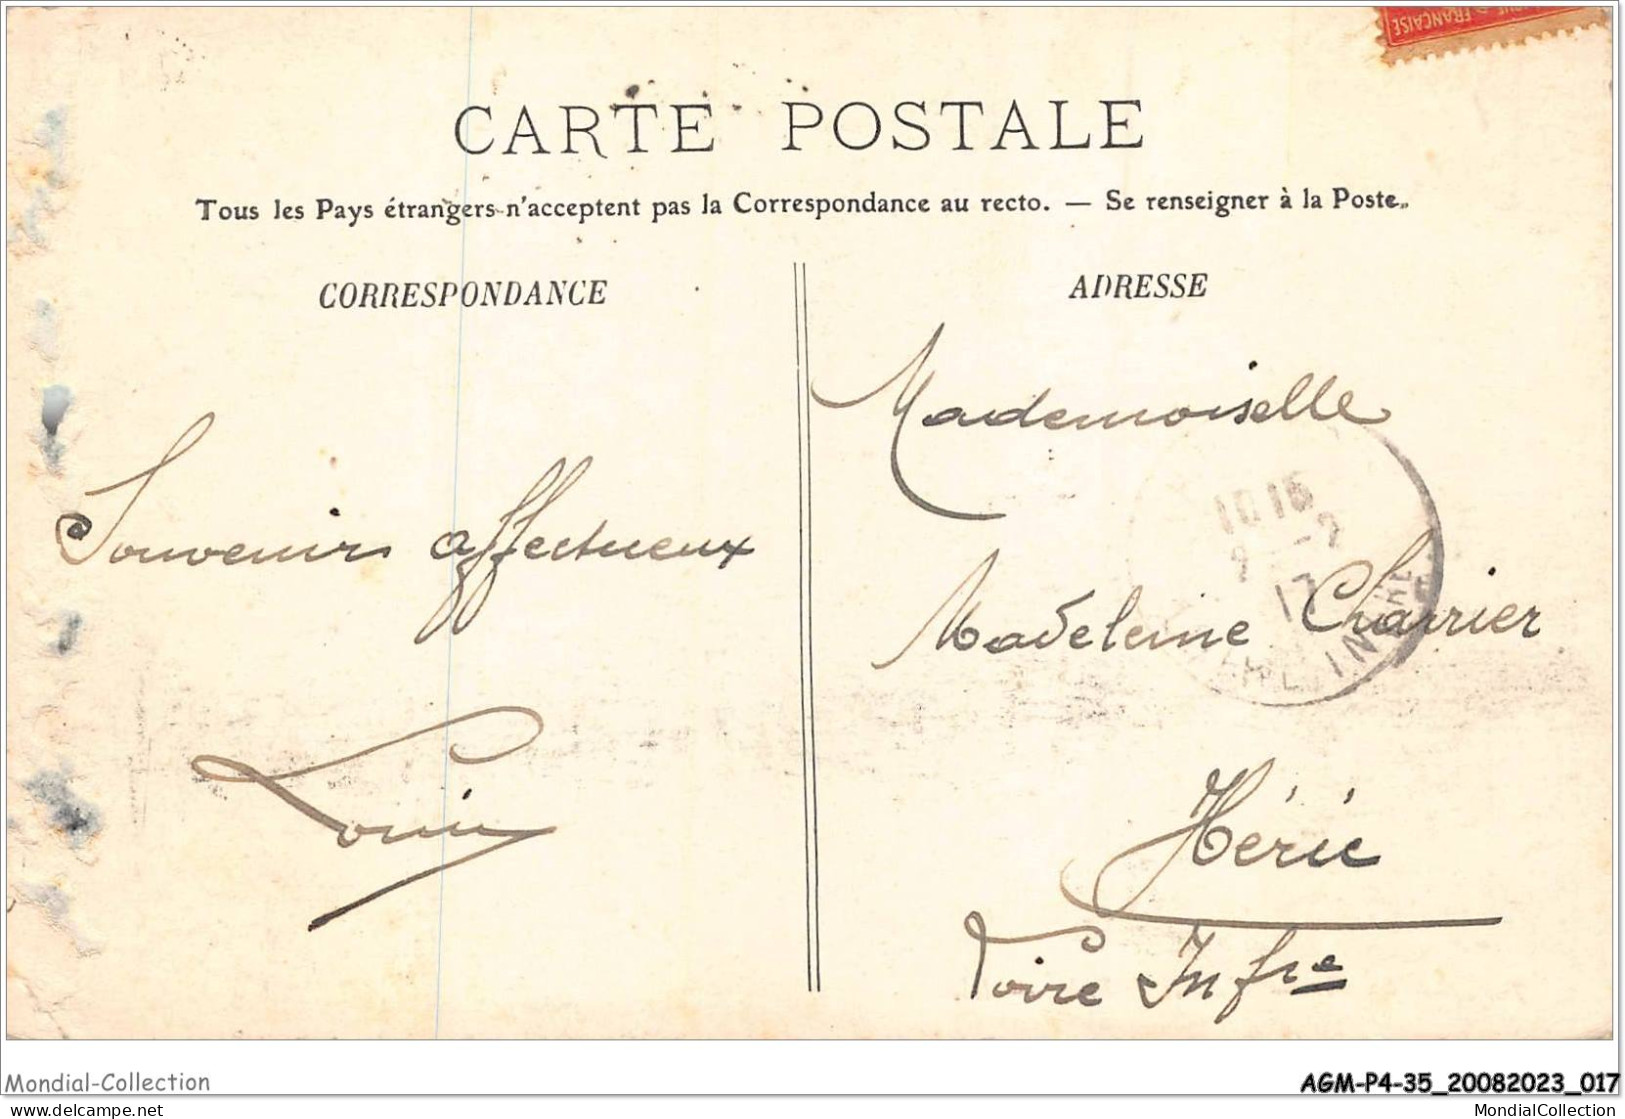 FRANÇAISE
CARTE POSTALE
Tous les Pays étrangers n'acceptent pas la Correspondance au recto. — Se renseigner à la Poste.
CORRESPONDANCE
ADRESSE
Mademoiselle
Souvenir affectueux
Madeleine Charrier
Louis
Héric
Loire Infre
10 15
2 -2
17
INF
Mondial-Collection
AGM-P4-35_20082023_017
www.delcampe.net
MondialCollection